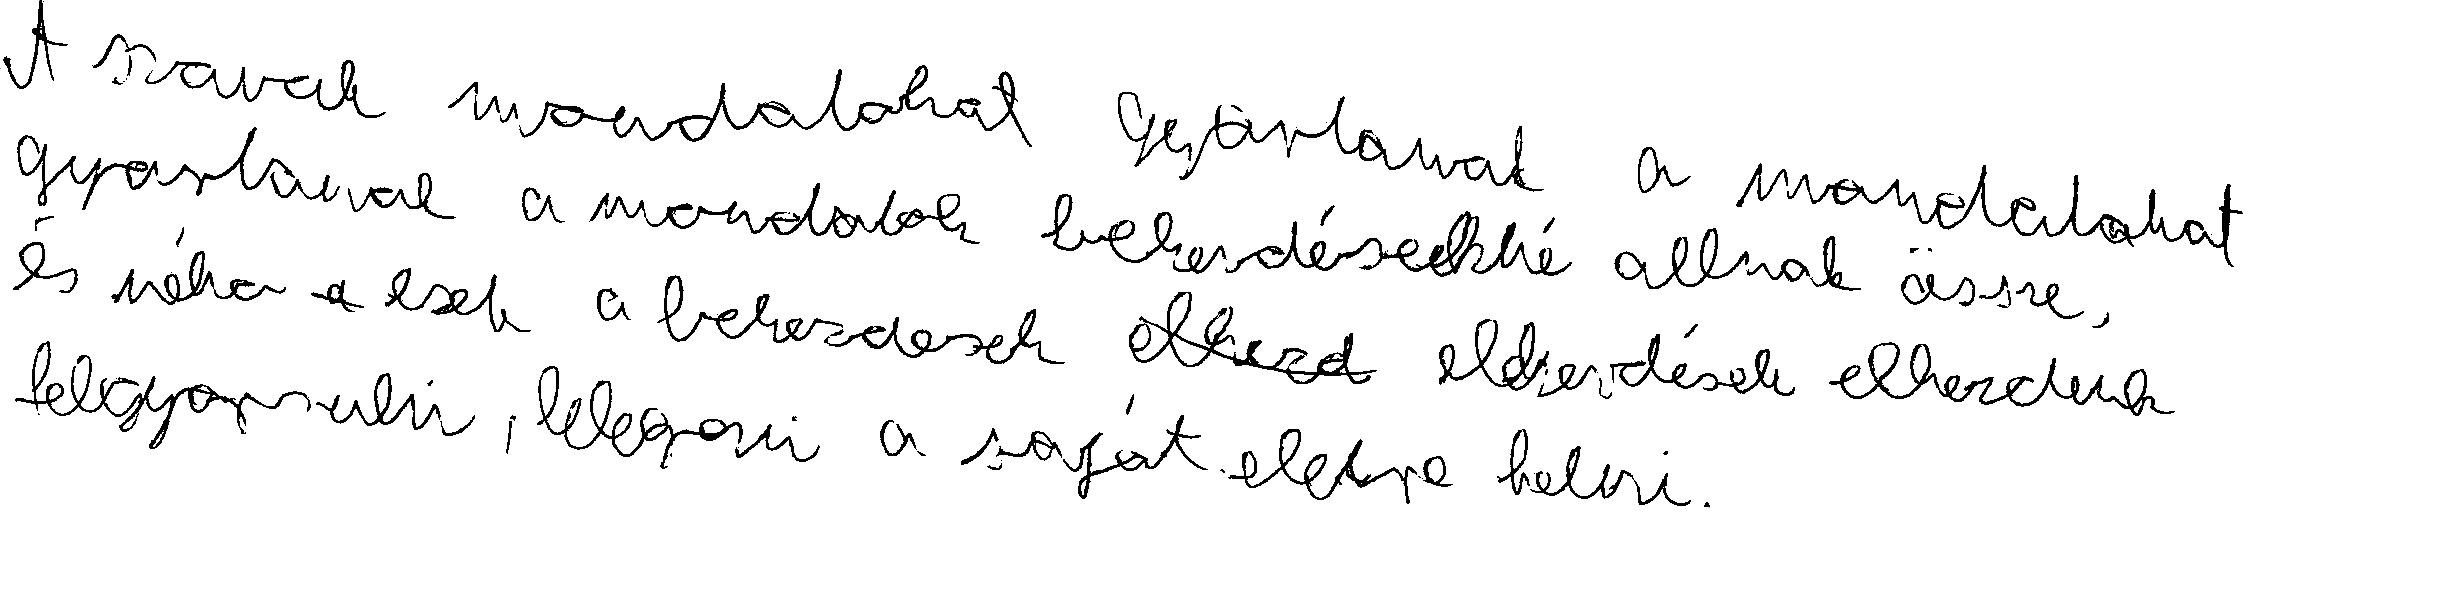 A szavak mondatokat gyártanak a mondatokat
gyartanak a mondatok bekezdésekké allnak össze,
és néha ezek a bekezdesek elkezdések elkezdenk
felgyorsulni, lelegzni a saját eletre kelni.